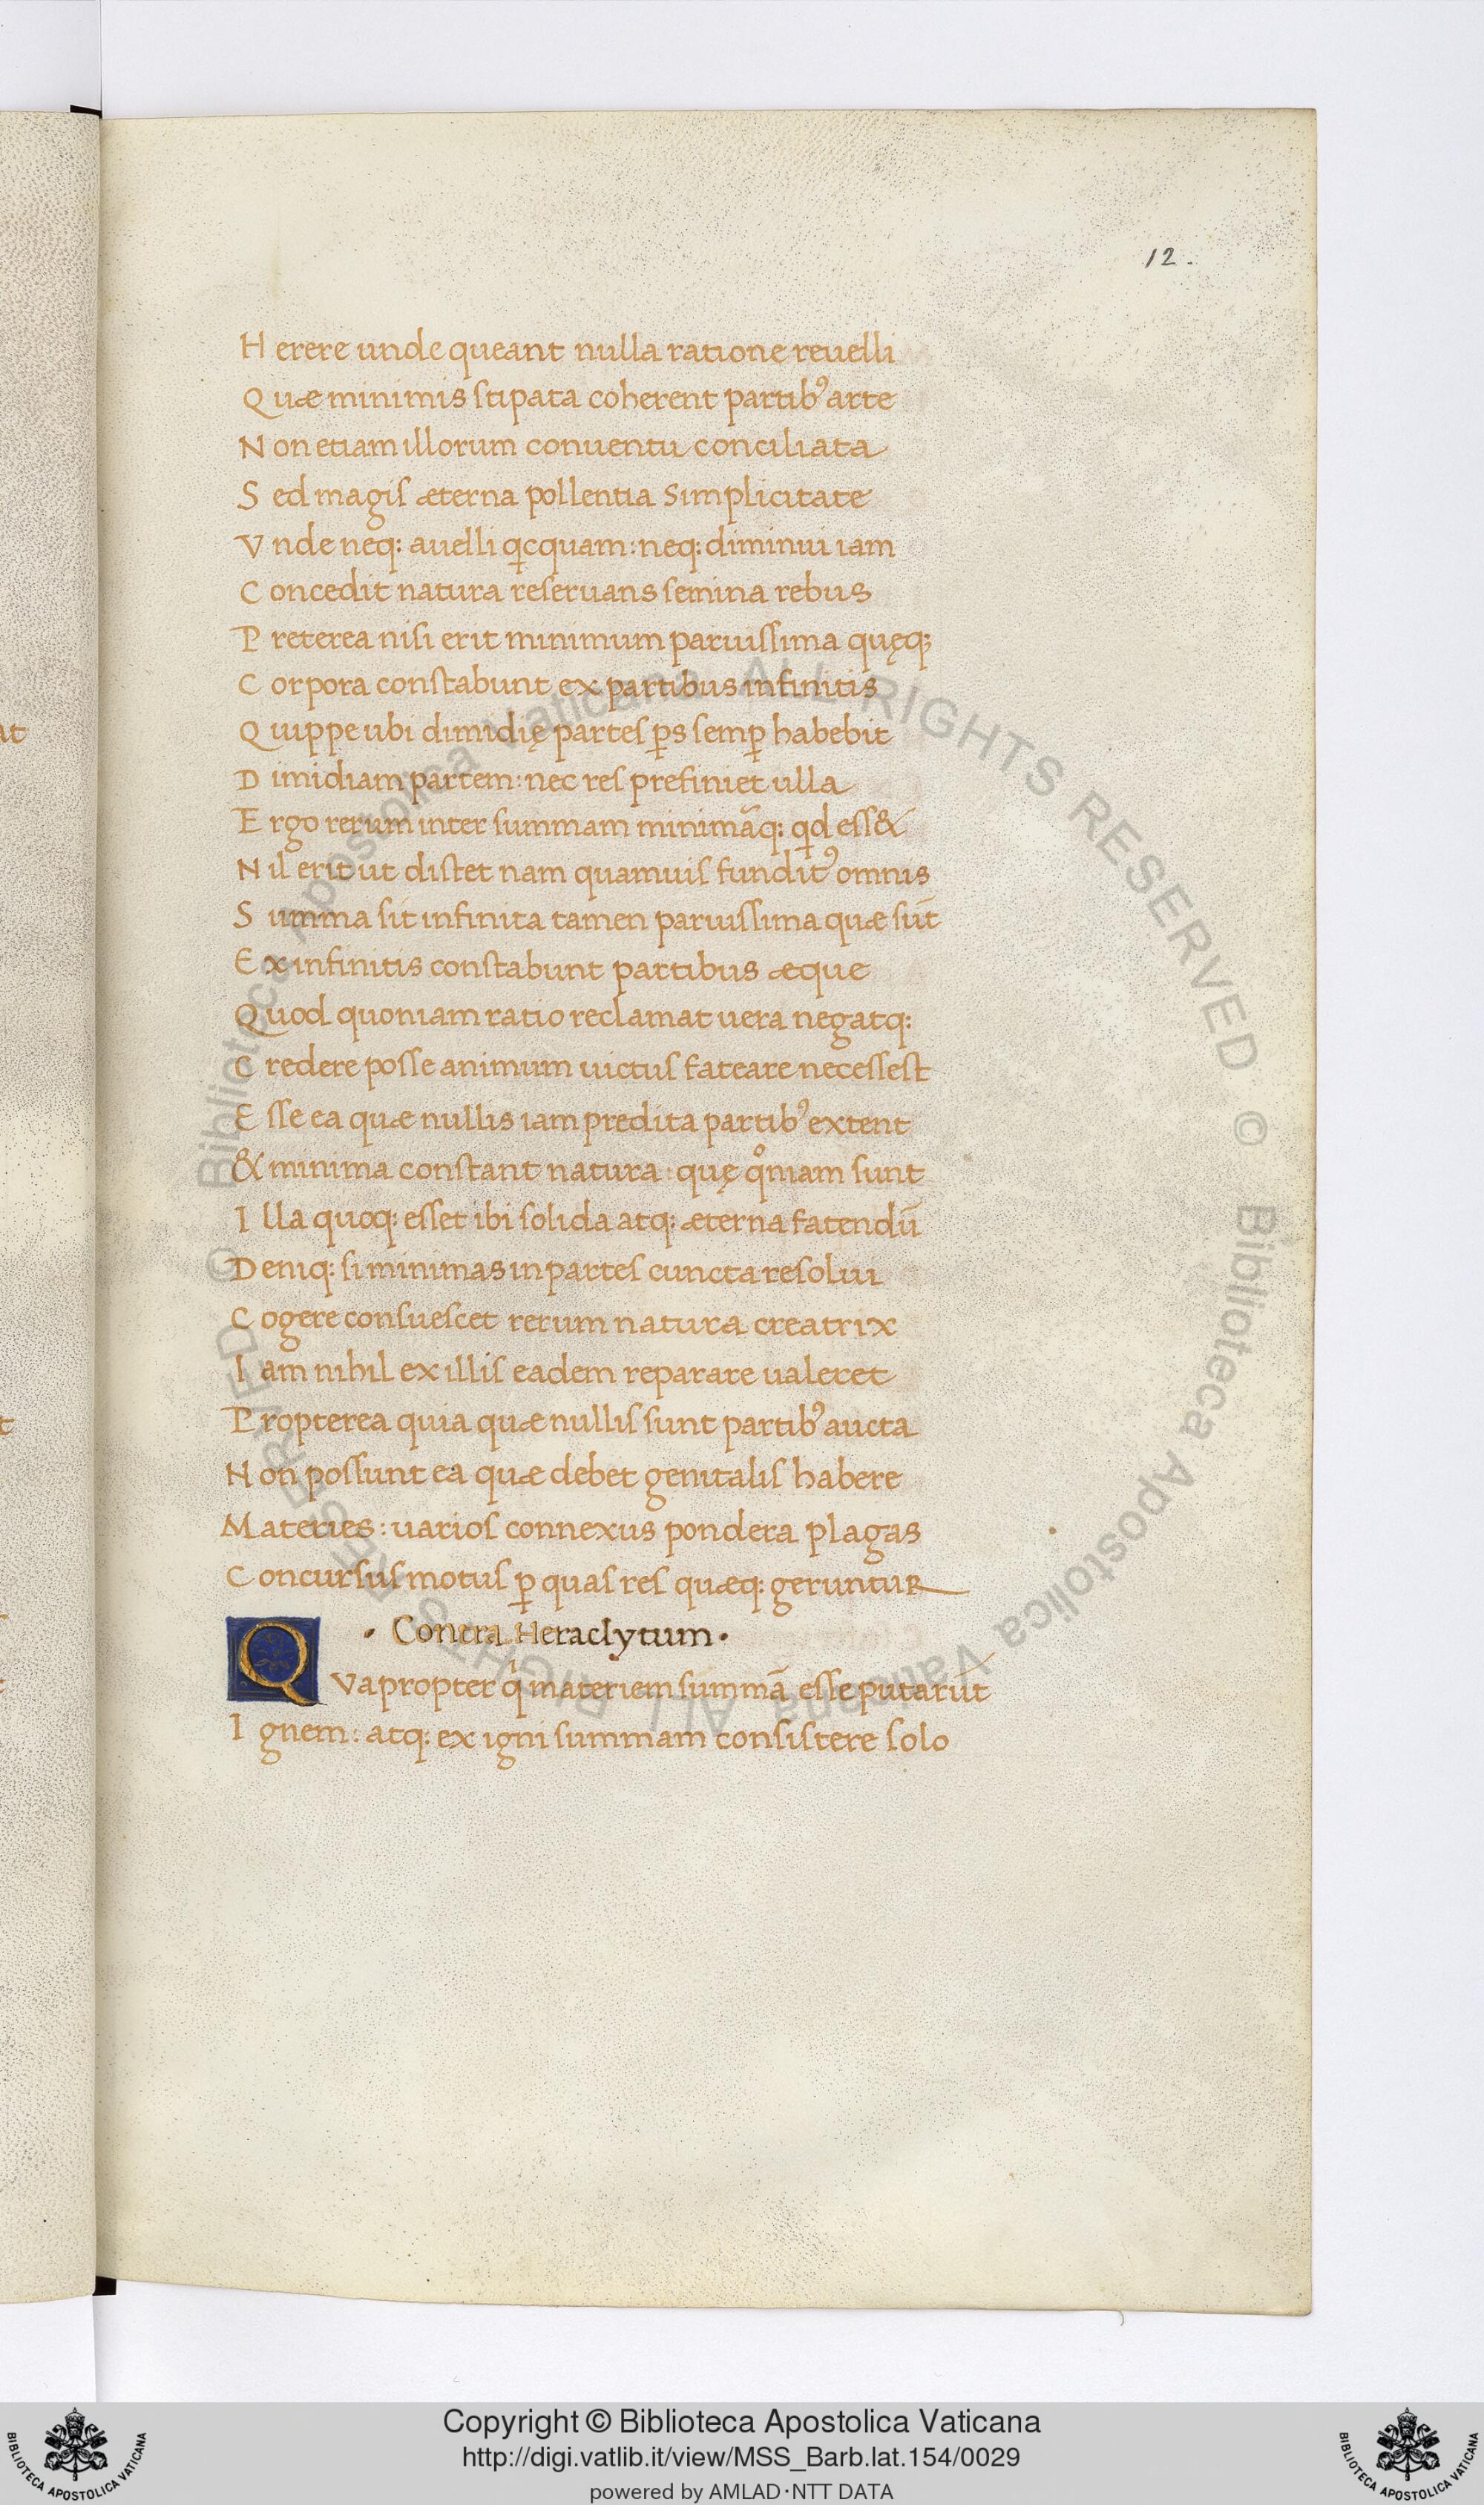 12.
Herere unde queant nulla ratione reuelli
Quæ minimis stipata coherent partibꝰ arte
Non etiam illorum conuentu conciliata
Sed magis æterna pollentia simplicitate
Vnde neq: auelli qicquam: neq: diminui iam
Concedit natura reseruans semina rebus
Preterea nisi erit minimum paruissima quęq;
Corpora constabunt ex partibus infinitis
Quippe ubi dimidię partes ꝑs semꝑ habebit
Dimidiam partem: nec res prefiniet ulla
Ergo rerum inter summam minimāq: qid ess&
Nil erit ut distet nam quamuis funditꝰ omnis
Summa sit infinita tamen paruissima quæ sūt
Ex infinitis constabunt partibus æque
Quod quoniam ratio reclamat uera negatq:
Credere posse animum uictus fateare necessest
Esse ea quæ nullis iam predita partibꝰ extent
& minima constant natura: quę qͦniam sunt
Illa quoq: esset ibi solida atq: æterna fatendū
Deniq: si minimas in partes cuncta resolui
Cogere consuescet rerum natura creatrix
Iam nihil ex illis eadem reparare ualeret
Propterea quia quæ nullis sunt partibꝰ aucta
Non possunt ea quæ debet genitalis habere
Materies: uarios connexus pondera plagas
Concursus motus ꝑ quas res quæq: geruntur
· Contra Heraclytum ·
QVapropter qͥ materiem summā esse putarūt
Ignem: atq: ex igni summam consistere solo
© Biblioteca Apostolica Vaticana ALL RIGHTS RESERVED © Biblioteca Apostolica Vaticana ALL RIGHTS RESERVED
BIBLIOTECA APOSTOLICA VATICANA
Copyright © Biblioteca Apostolica Vaticana
http://digi.vatlib.it/view/MSS_Barb.lat.154/0029
powered by AMLAD·NTT DATA
BIBLIOTECA APOSTOLICA VATICANA